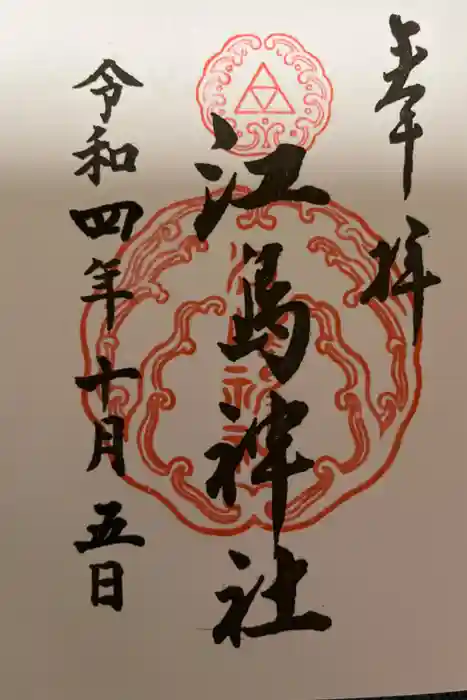 奉拝
江島神社
令和四年十月五日